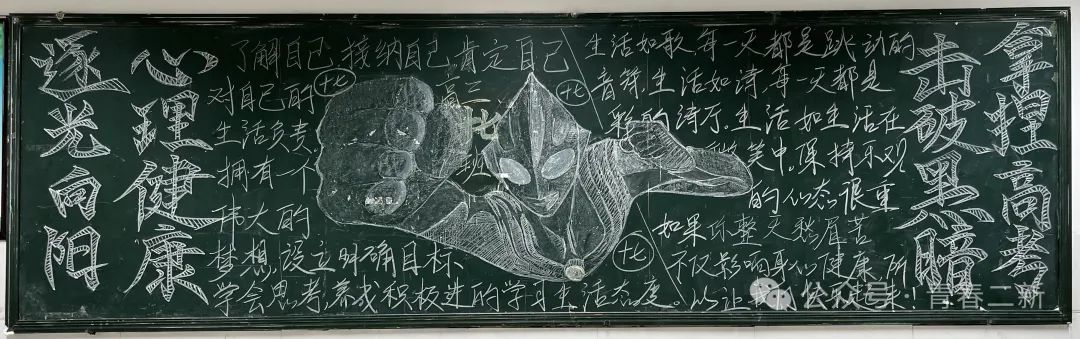 逐光向阳
心理健康
了解自己,接纳自己,肯定自己
对自己的
生活负责
拥有一个
伟大的
梦想,设立明确目标、
学会思考,养成积极进的学习生活态度。
十七
高三
十七
班
十七
十七
生活如歌,每一天都是跳动的
音符,生活如诗,每一天都是
的诗。生活如生活在
笑中,保持乐观
的心态很重
如果你整天愁眉苦
不仅影响身心健康,所
以让
击破黑暗
拿捏高考
公众号·青春二新